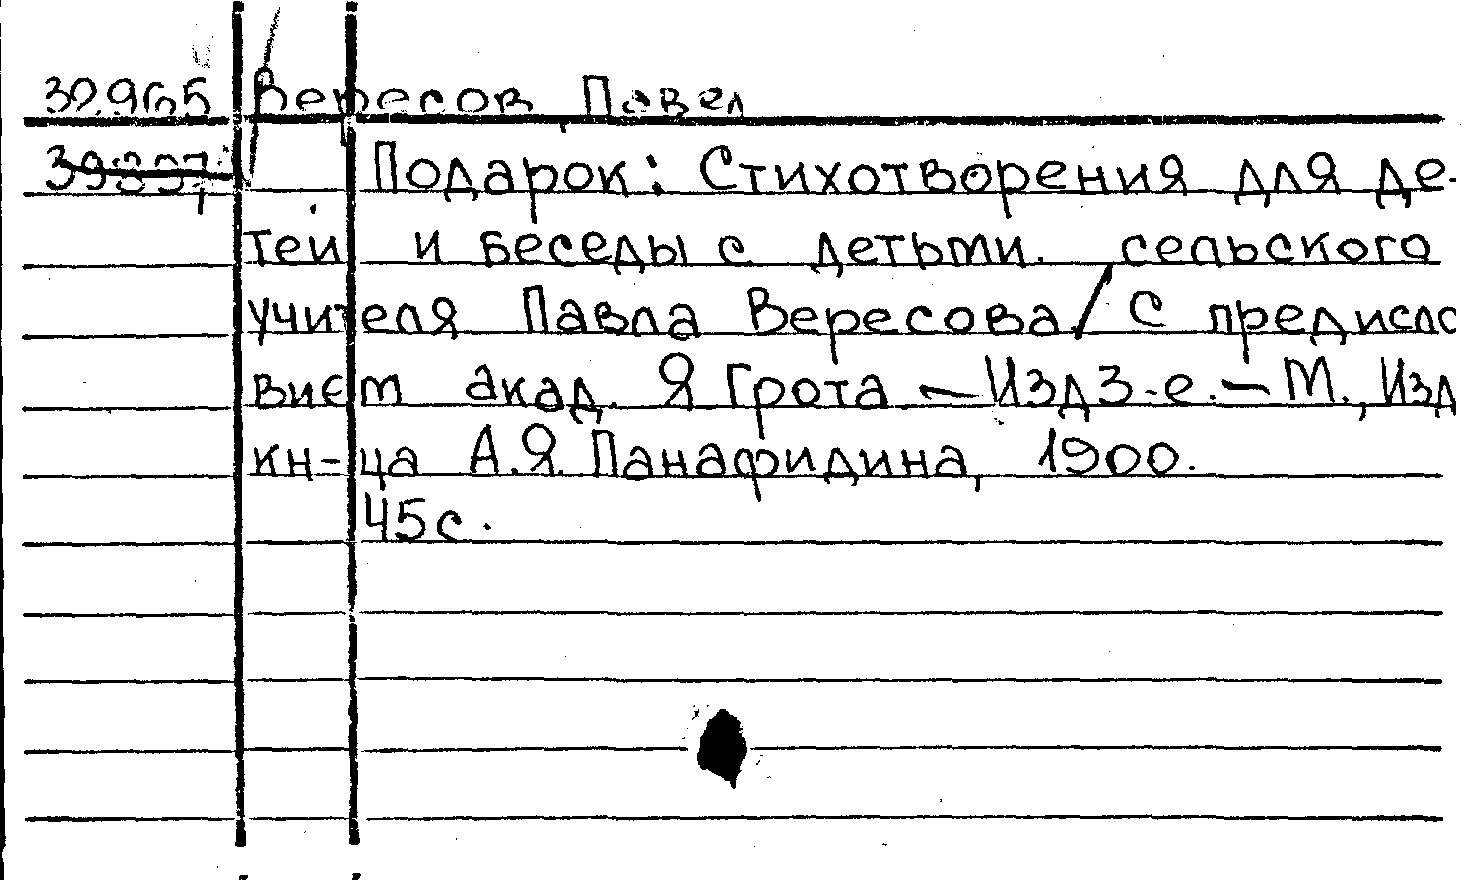 32.965 Вересов, Павел
39897 Подарок: Стихотворения для де-
тей и беседы с детьми. сельского
учителя Павла Вересова / С предисло
вием акад. Я Грота — Изд 3-е. — М., Изд
кн-ца А.Я. Панафидина, 1900.
45с.